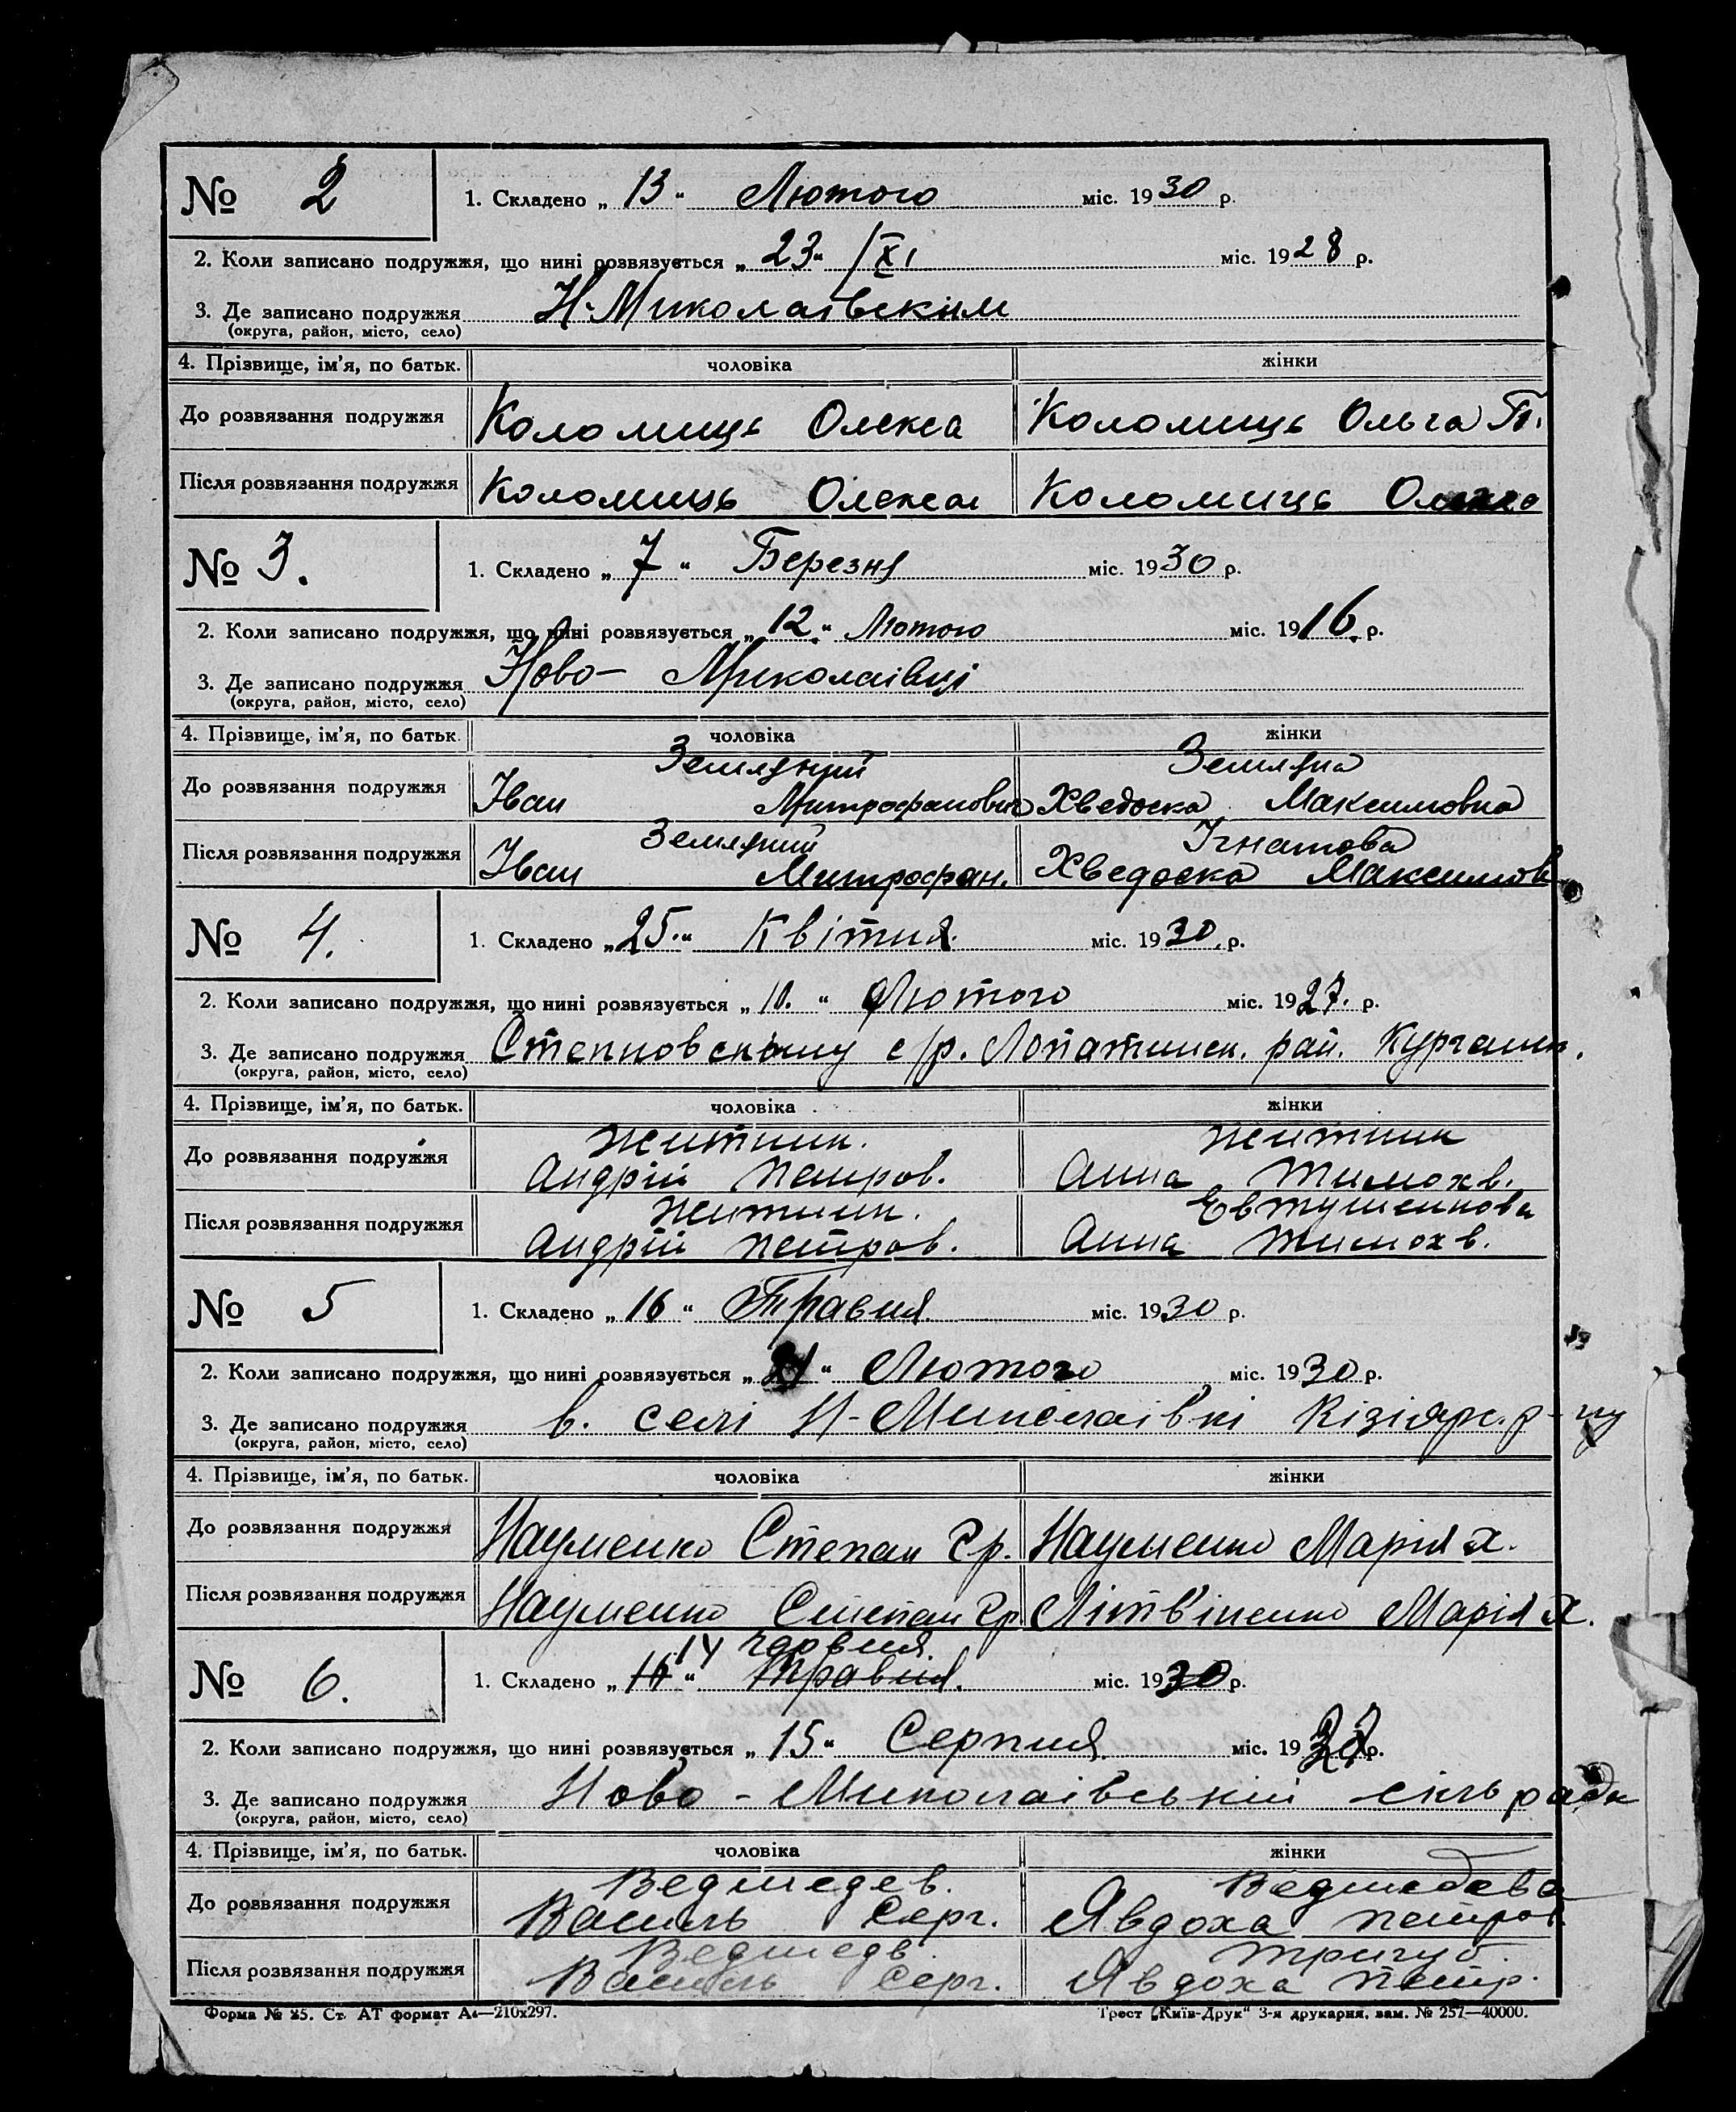 № 2 1. Складено „ 13 “ Лютого міс. 1930 р.
2. Коли записано подружжя, що нині розвязується „ 23 “ /XI міс. 1928 р.
3. Де записано подружжя Н-Миколаївским
(округа, район, місто, село)
4. Прізвище, ім'я, по батьк. чоловіка жінки
До розвязання подружжя Коломиць Олекса Коломиць Ольга П.
Після розвязання подружжя Коломиць Олекса Коломиць
№ 3. 1. Складено „ 7 “ Березня міс. 1930 р.
2. Коли записано подружжя, що нині розвязується „ 12 “ Лютого міс. 1916 р.
3. Де записано подружжя Ново- Миколаівці
(округа, район, місто, село)
4. Прізвище, ім'я, по батьк. чоловіка жінки
Земляний Земляна
До розвязання подружжя Іван Митрофанович Хведоска Максимовна
Земляний Ігнатова
Після розвязання подружжя Іван Митрофан. Хведоска Максимов
№ 4. 1. Складено „ 25. “ Квітня. міс. 1930. р.
2. Коли записано подружжя, що нині розвязується „ 10. “ Лютого міс. 1927. р.
3. Де записано подружжя Степновскому с/р. Лопатинск. рай. Курганск.
(округа, район, місто, село)
4. Прізвище, ім'я, по батьк. чоловіка жінки
Житник. Житник
До розвязання подружжя Андрій Петров. Анна Тимохв.
Житник. Евтушенкова
Після розвязання подружжя Андрій Петров. Анна Тимохв.
№ 5 1. Складено „ 16 “ Травня міс. 1930 р.
2. Коли записано подружжя, що нині розвязується „ 21 “ Лютого міс. 1930 р.
3. Де записано подружжя в. селі Н-Миколаівкі Кізіярс. р-ну
(округа, район, місто, село)
4. Прізвище, ім'я, по батьк. чоловіка жінки
До розвязання подружжя Науменко Степан Гр. Науменко Марія Х.
Після розвязання подружжя Науменко Степан Гр Літвіненко Марія Х.
14 червня.
№ 6. 1. Складено „ 16 “ Травня. міс. 1930 р.
2. Коли записано подружжя, що нині розвязується „ 15 “ Серпня міс. 19 р.
3. Де записано подружжя Ново - Миколаівській сільради
(округа, район, місто, село)
4. Прізвище, ім'я, по батьк. чоловіка жінки
Ведмедев. Ведмедева
До розвязання подружжя Василь Серг. Явдоха Петров.
Ведмедв. Тригуб.
Після розвязання подружжя Василь Серг. Явдоха Петр.
Форма № 25. Ст. АТ формат А4—210х297. Трест „Київ-Друк“ 3-я друкарня, зам. № 257—40000.